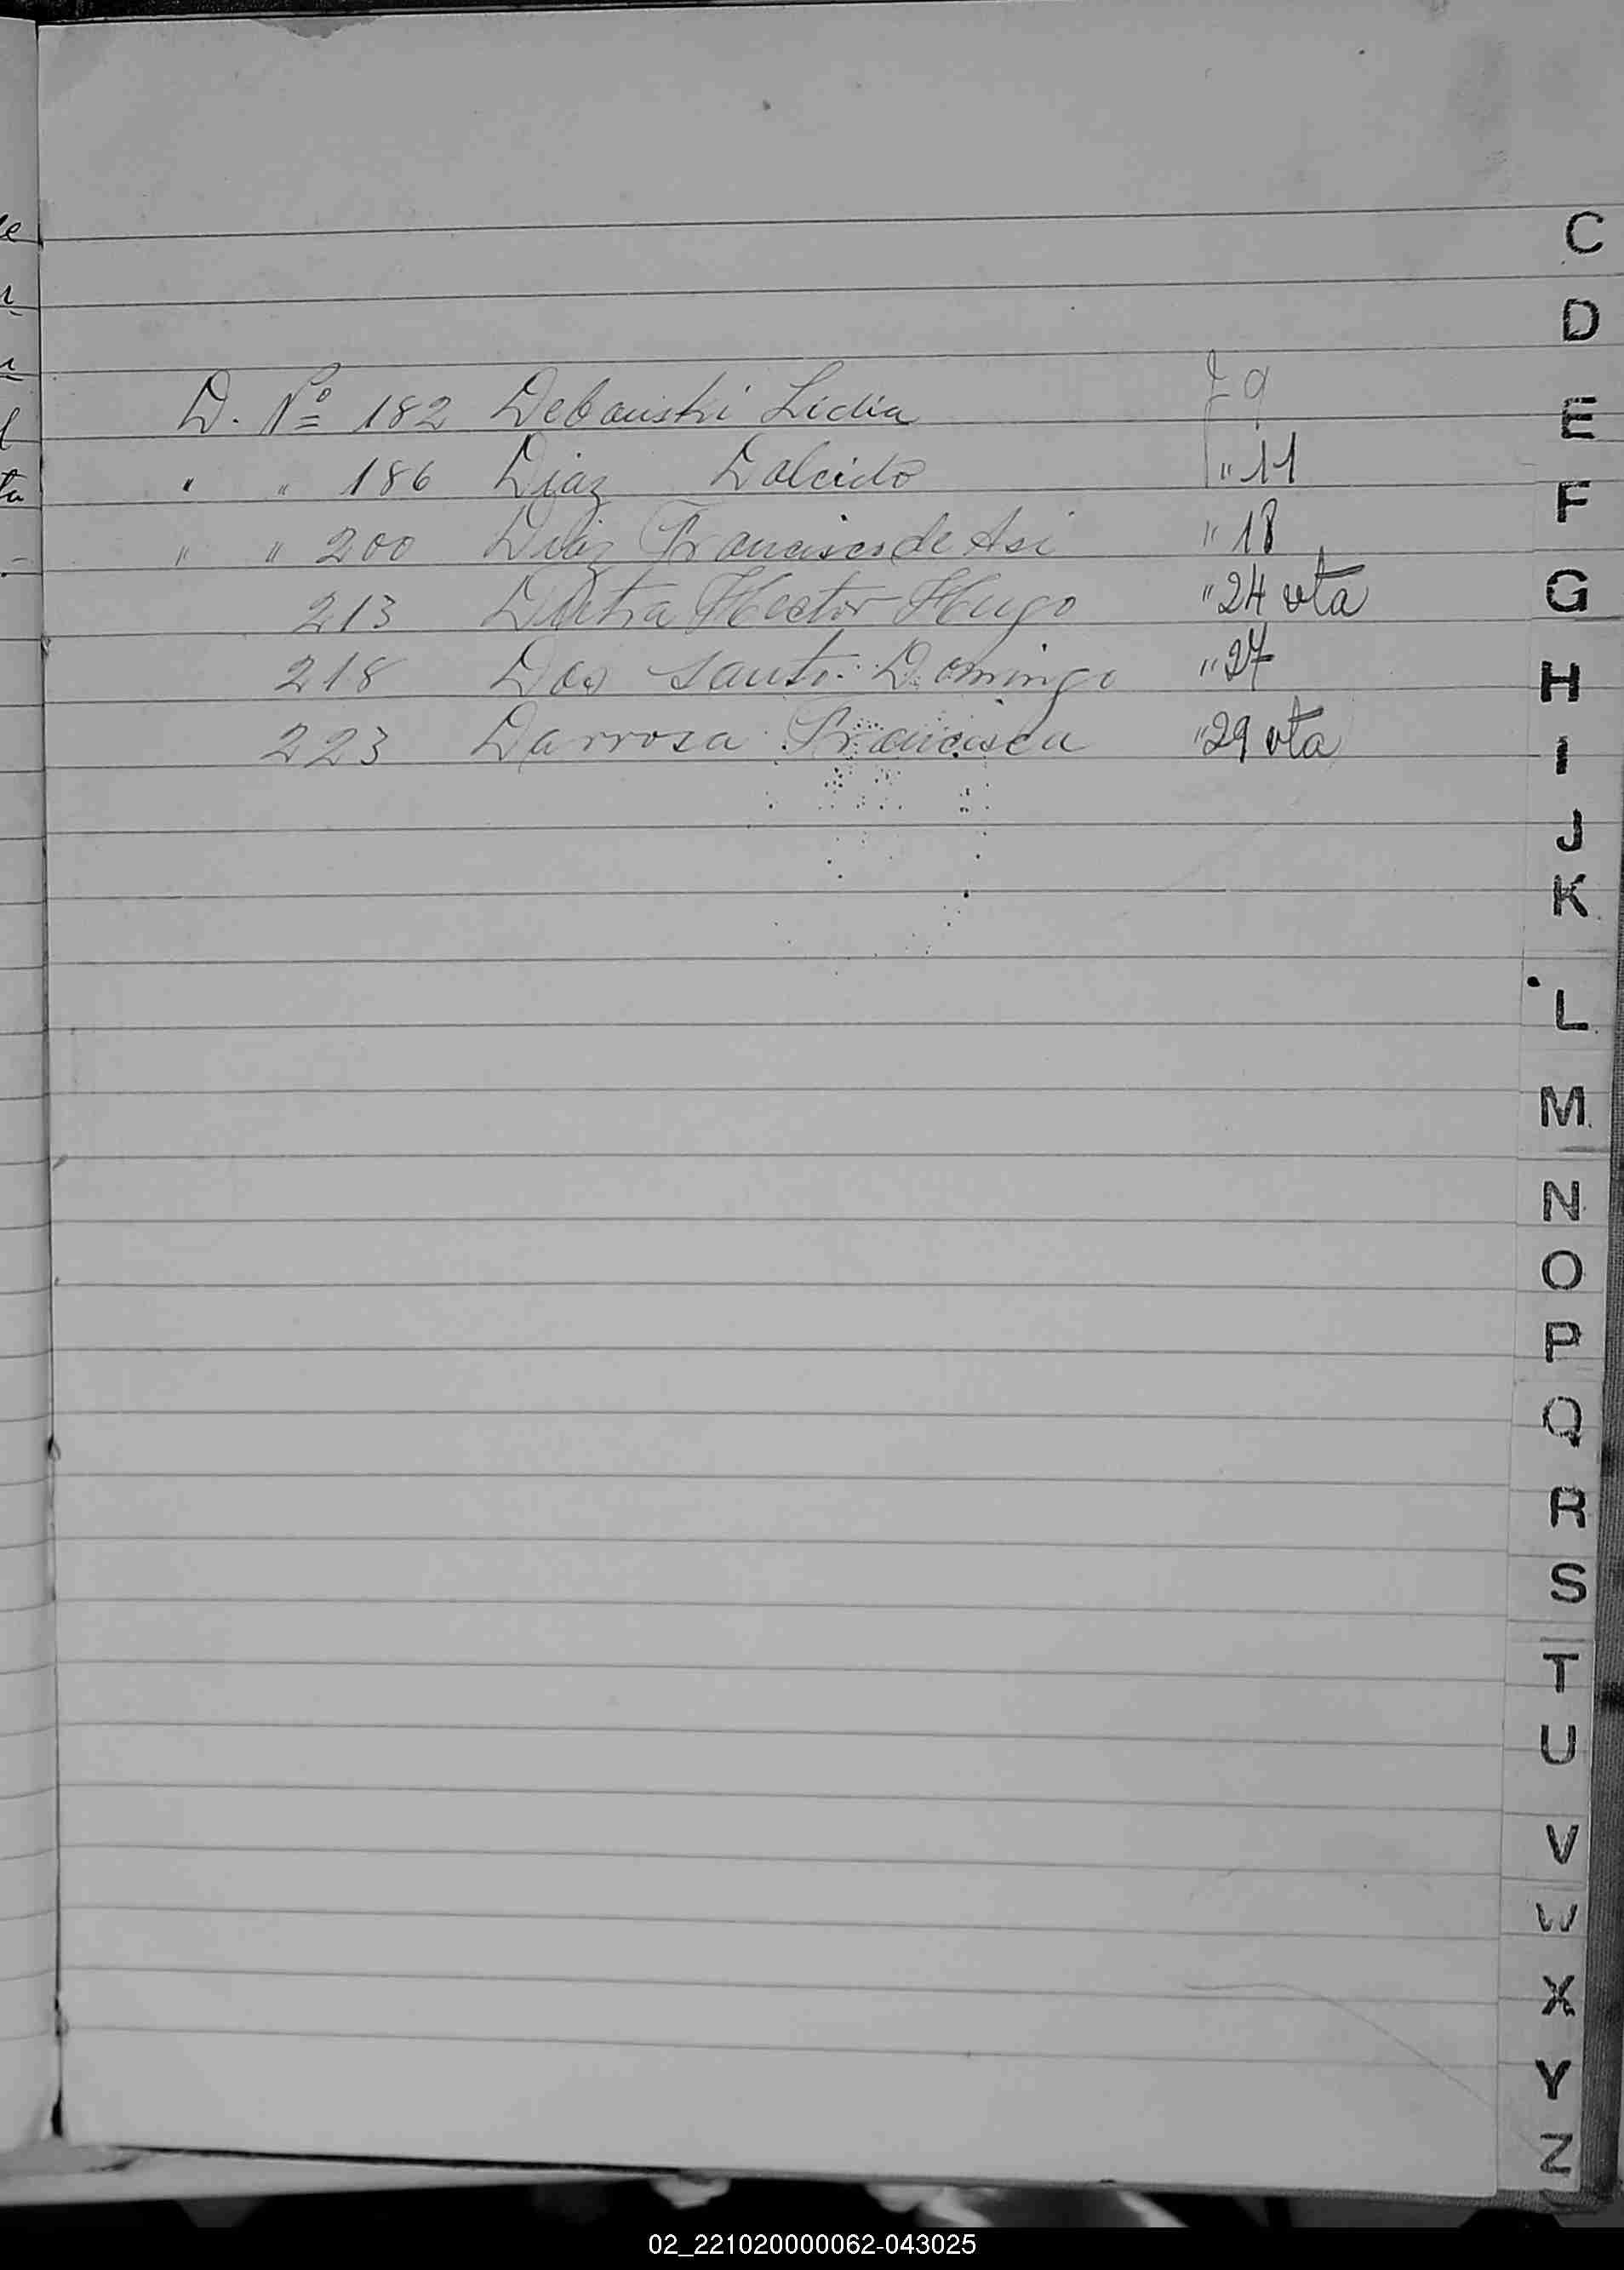 D. Nº 182 Debouski Lidia f 9
" " 186 Diaz Dalcido " 11
" " 200 Diaz Francisco de Asi " 18
213 Dutra Hector Hugo " 24 vta
218 Dos Santo: Domingo " 27
223 Darrosa Francisca " 29 vta
C
D
E
F
G
H
I
J
K
L
M
N
O
P
Q
R
S
T
U
V
W
X
Y
Z
02_221020000062-043025